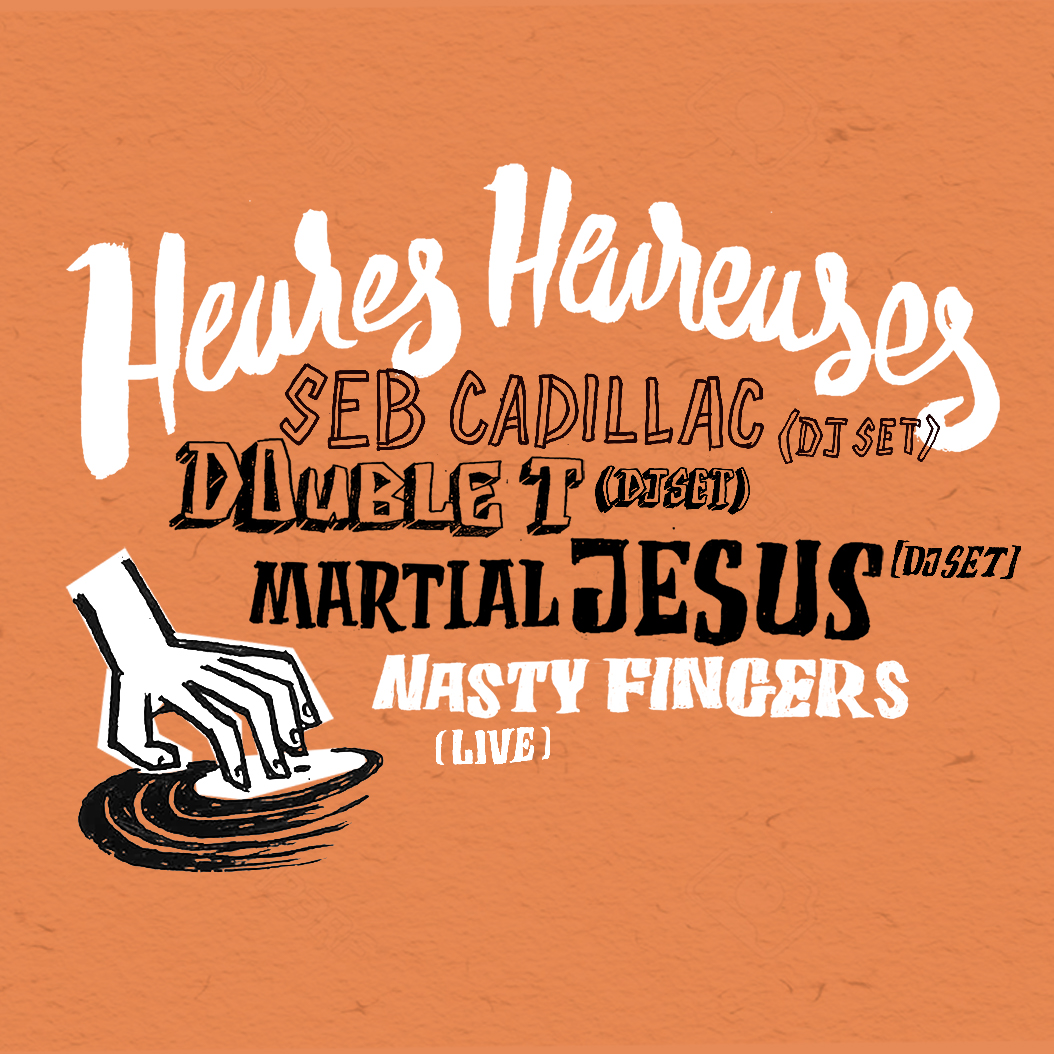 Heures Heureuses
SEB CADILLAC (DJ SET)
DOUBLE T (DJ SET)
MARTIAL JESUS [DJ SET]
NASTY FINGERS
(LIVE)